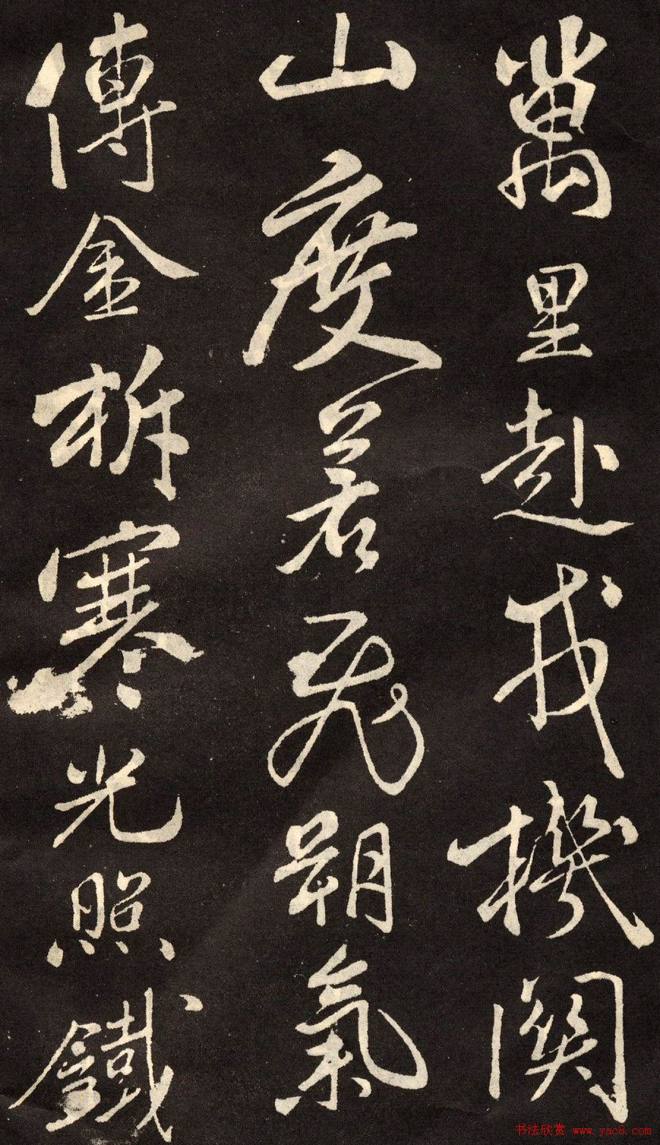 萬里赴戎機關
山度若飛朔氣
傳金柝寒光照鐵
书法欣赏 www.yac8.com